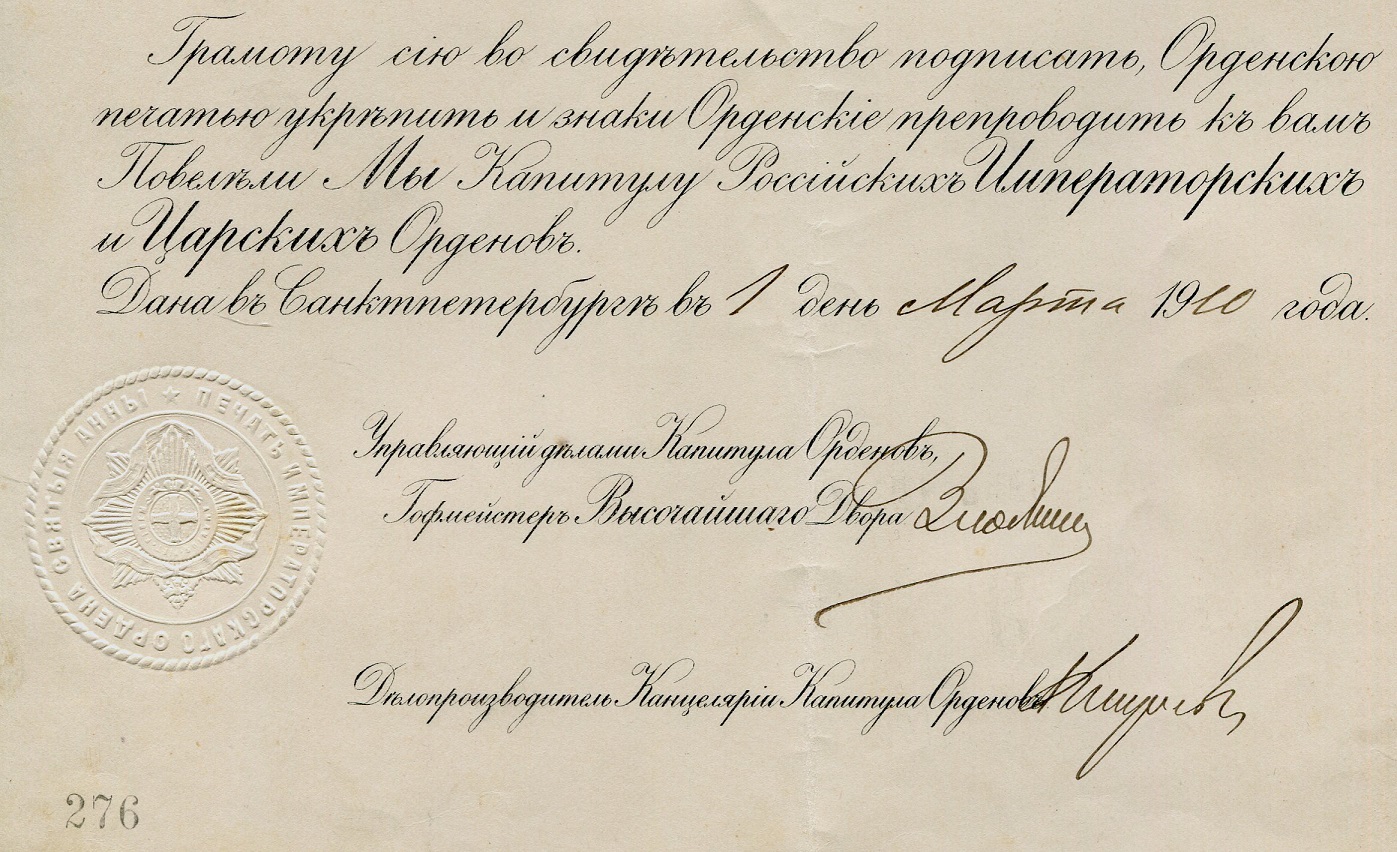 Грамоту сію во свидѣтельство подписать, Орденскою
печатью укрѣпить и знаки Орденскіе препроводить къ вамъ
Повелѣли Мы Капитулу Россійскихъ Императорскихъ
и Царскихъ Орденовъ.
Дана въ Санктпетербургѣ въ 1 день Марта 1910 года.
ПЕЧАТЬ ИМПЕРАТОРСКАГО ОРДЕНА СВЯТЫЯ АННЫ
Управляющій дѣлами Капитула Орденовъ,
Гофмейстеръ Высочайшаго Двора
Дѣлопроизводитель Канцеляріи Капитула Орденовъ
276